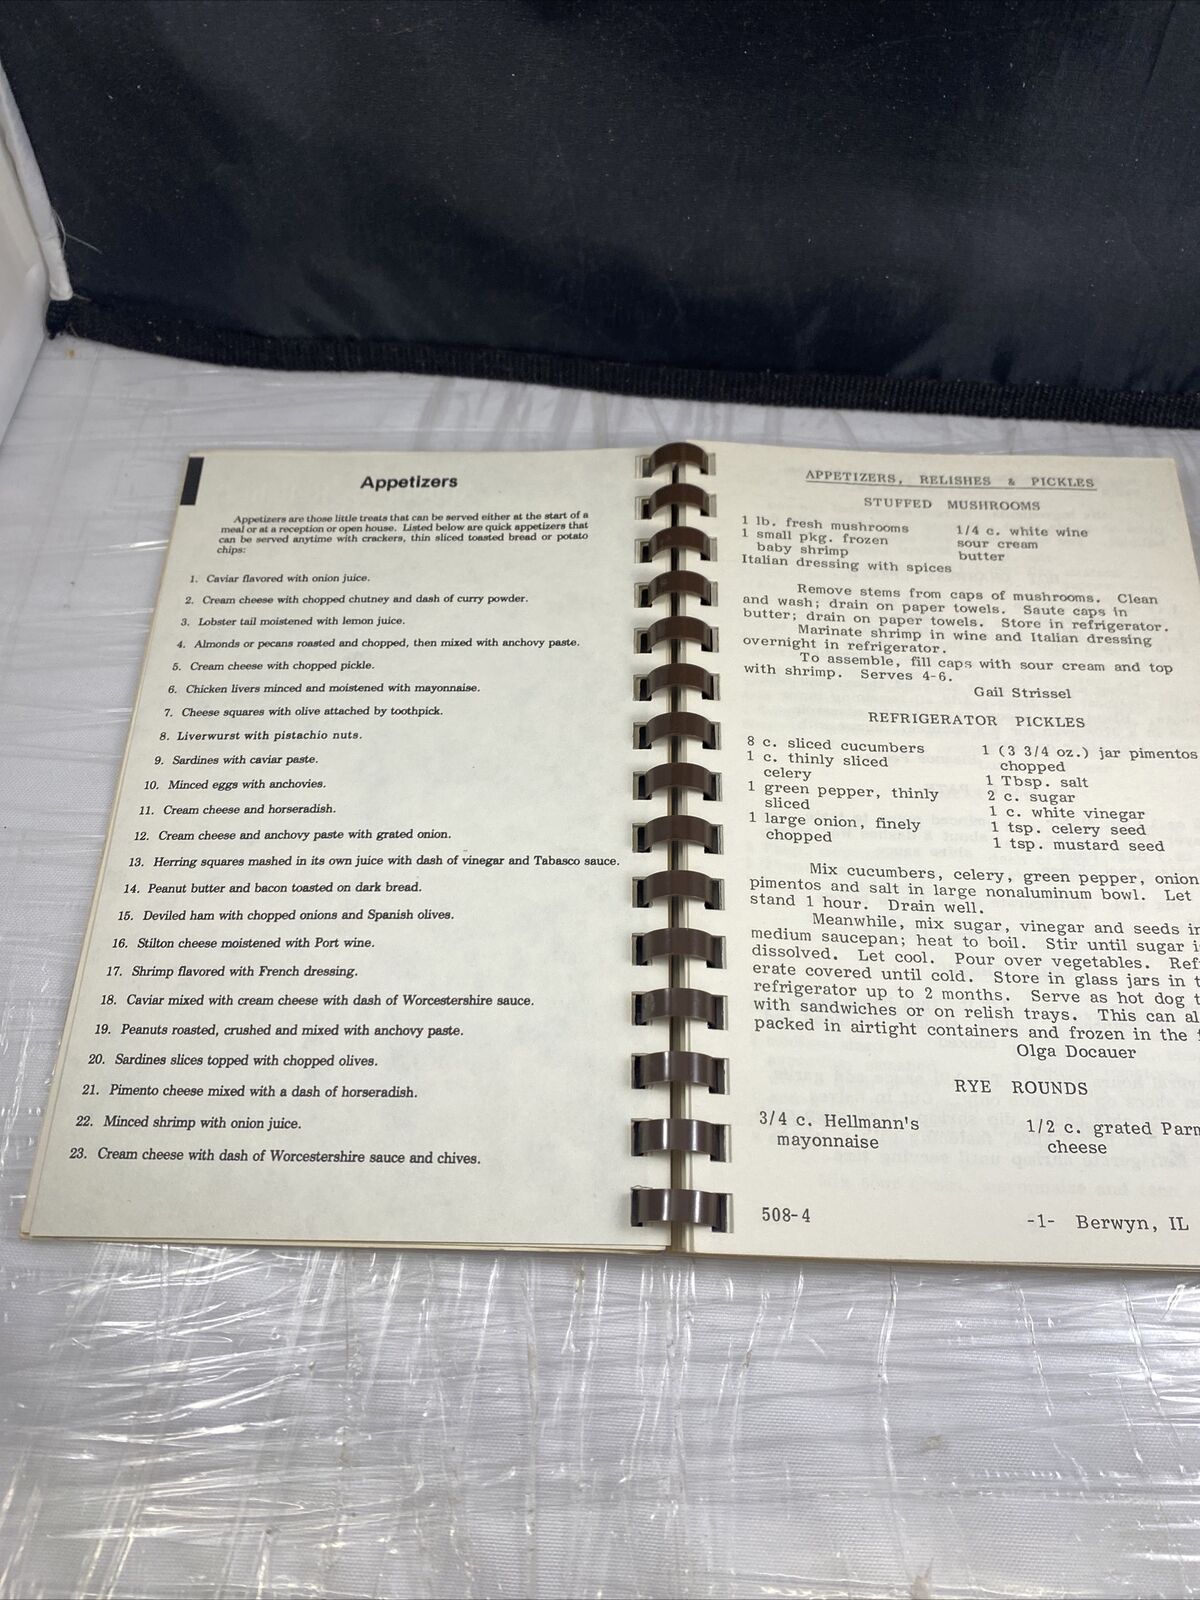 Appetizers
Appetizers are those little treats that can be served either at the start of a
meal or at a reception or open house. Listed below are quick appetizers that
can be served anytime with crackers, thin sliced toasted bread or potato
chips:
1. Caviar flavored with onion juice.
2. Cream cheese with chopped chutney and dash of curry powder.
3. Lobster tail moistened with lemon juice.
4. Almonds or pecans roasted and chopped, then mixed with anchovy paste.
5. Cream cheese with chopped pickle.
6. Chicken livers minced and moistened with mayonnaise.
7. Cheese squares with olive attached by toothpick.
8. Liverwurst with pistachio nuts.
9. Sardines with caviar paste.
10. Minced eggs with anchovies.
11. Cream cheese and horseradish.
12. Cream cheese and anchovy paste with grated onion.
13. Herring squares mashed in its own juice with dash of vinegar and Tabasco sauce.
14. Peanut butter and bacon toasted on dark bread.
15. Deviled ham with chopped onions and Spanish olives.
16. Stilton cheese moistened with Port wine.
17. Shrimp flavored with French dressing.
18. Caviar mixed with cream cheese with dash of Worcestershire sauce.
19. Peanuts roasted, crushed and mixed with anchovy paste.
20. Sardines slices topped with chopped olives.
21. Pimento cheese mixed with a dash of horseradish.
22. Minced shrimp with onion juice.
23. Cream cheese with dash of Worcestershire sauce and chives.
APPETIZERS, RELISHES & PICKLES
STUFFED MUSHROOMS
1 lb. fresh mushrooms
1 small pkg. frozen
baby shrimp
Italian dressing with spices
1/4 c. white wine
sour cream
butter
Remove stems from caps of mushrooms. Clean
and wash; drain on paper towels. Saute caps in
butter; drain on paper towels. Store in refrigerator.
Marinate shrimp in wine and Italian dressing
overnight in refrigerator.
To assemble, fill caps with sour cream and top
with shrimp. Serves 4-6.
Gail Strissel
REFRIGERATOR PICKLES
8 c. sliced cucumbers
1 c. thinly sliced
celery
1 green pepper, thinly
sliced
1 large onion, finely
chopped
1 (3 3/4 oz.) jar pimentos
chopped
1 Tbsp. salt
2 c. sugar
1 c. white vinegar
1 tsp. celery seed
1 tsp. mustard seed
Mix cucumbers, celery, green pepper, onion
pimentos and salt in large nonaluminum bowl. Let
stand 1 hour. Drain well.
Meanwhile, mix sugar, vinegar and seeds in
medium saucepan; heat to boil. Stir until sugar i
dissolved. Let cool. Pour over vegetables. Ref
erate covered until cold. Store in glass jars in t
refrigerator up to 2 months. Serve as hot dog t
with sandwiches or on relish trays. This can al
packed in airtight containers and frozen in the f
Olga Docauer
RYE ROUNDS
3/4 c. Hellmann's
mayonnaise
1/2 c. grated Parm
cheese
508-4
-1- Berwyn, IL